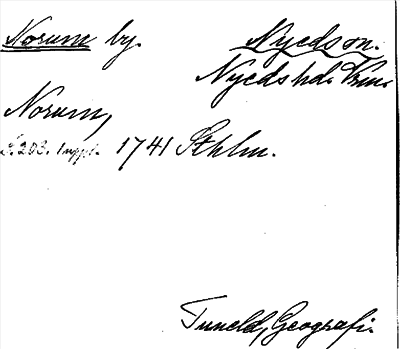 Norum by. Nyeds sn.
Nyeds hd. Vrml.
Norum,
S. 203. suppl. 1741 Sthlm.
Tuneld, Geografi.